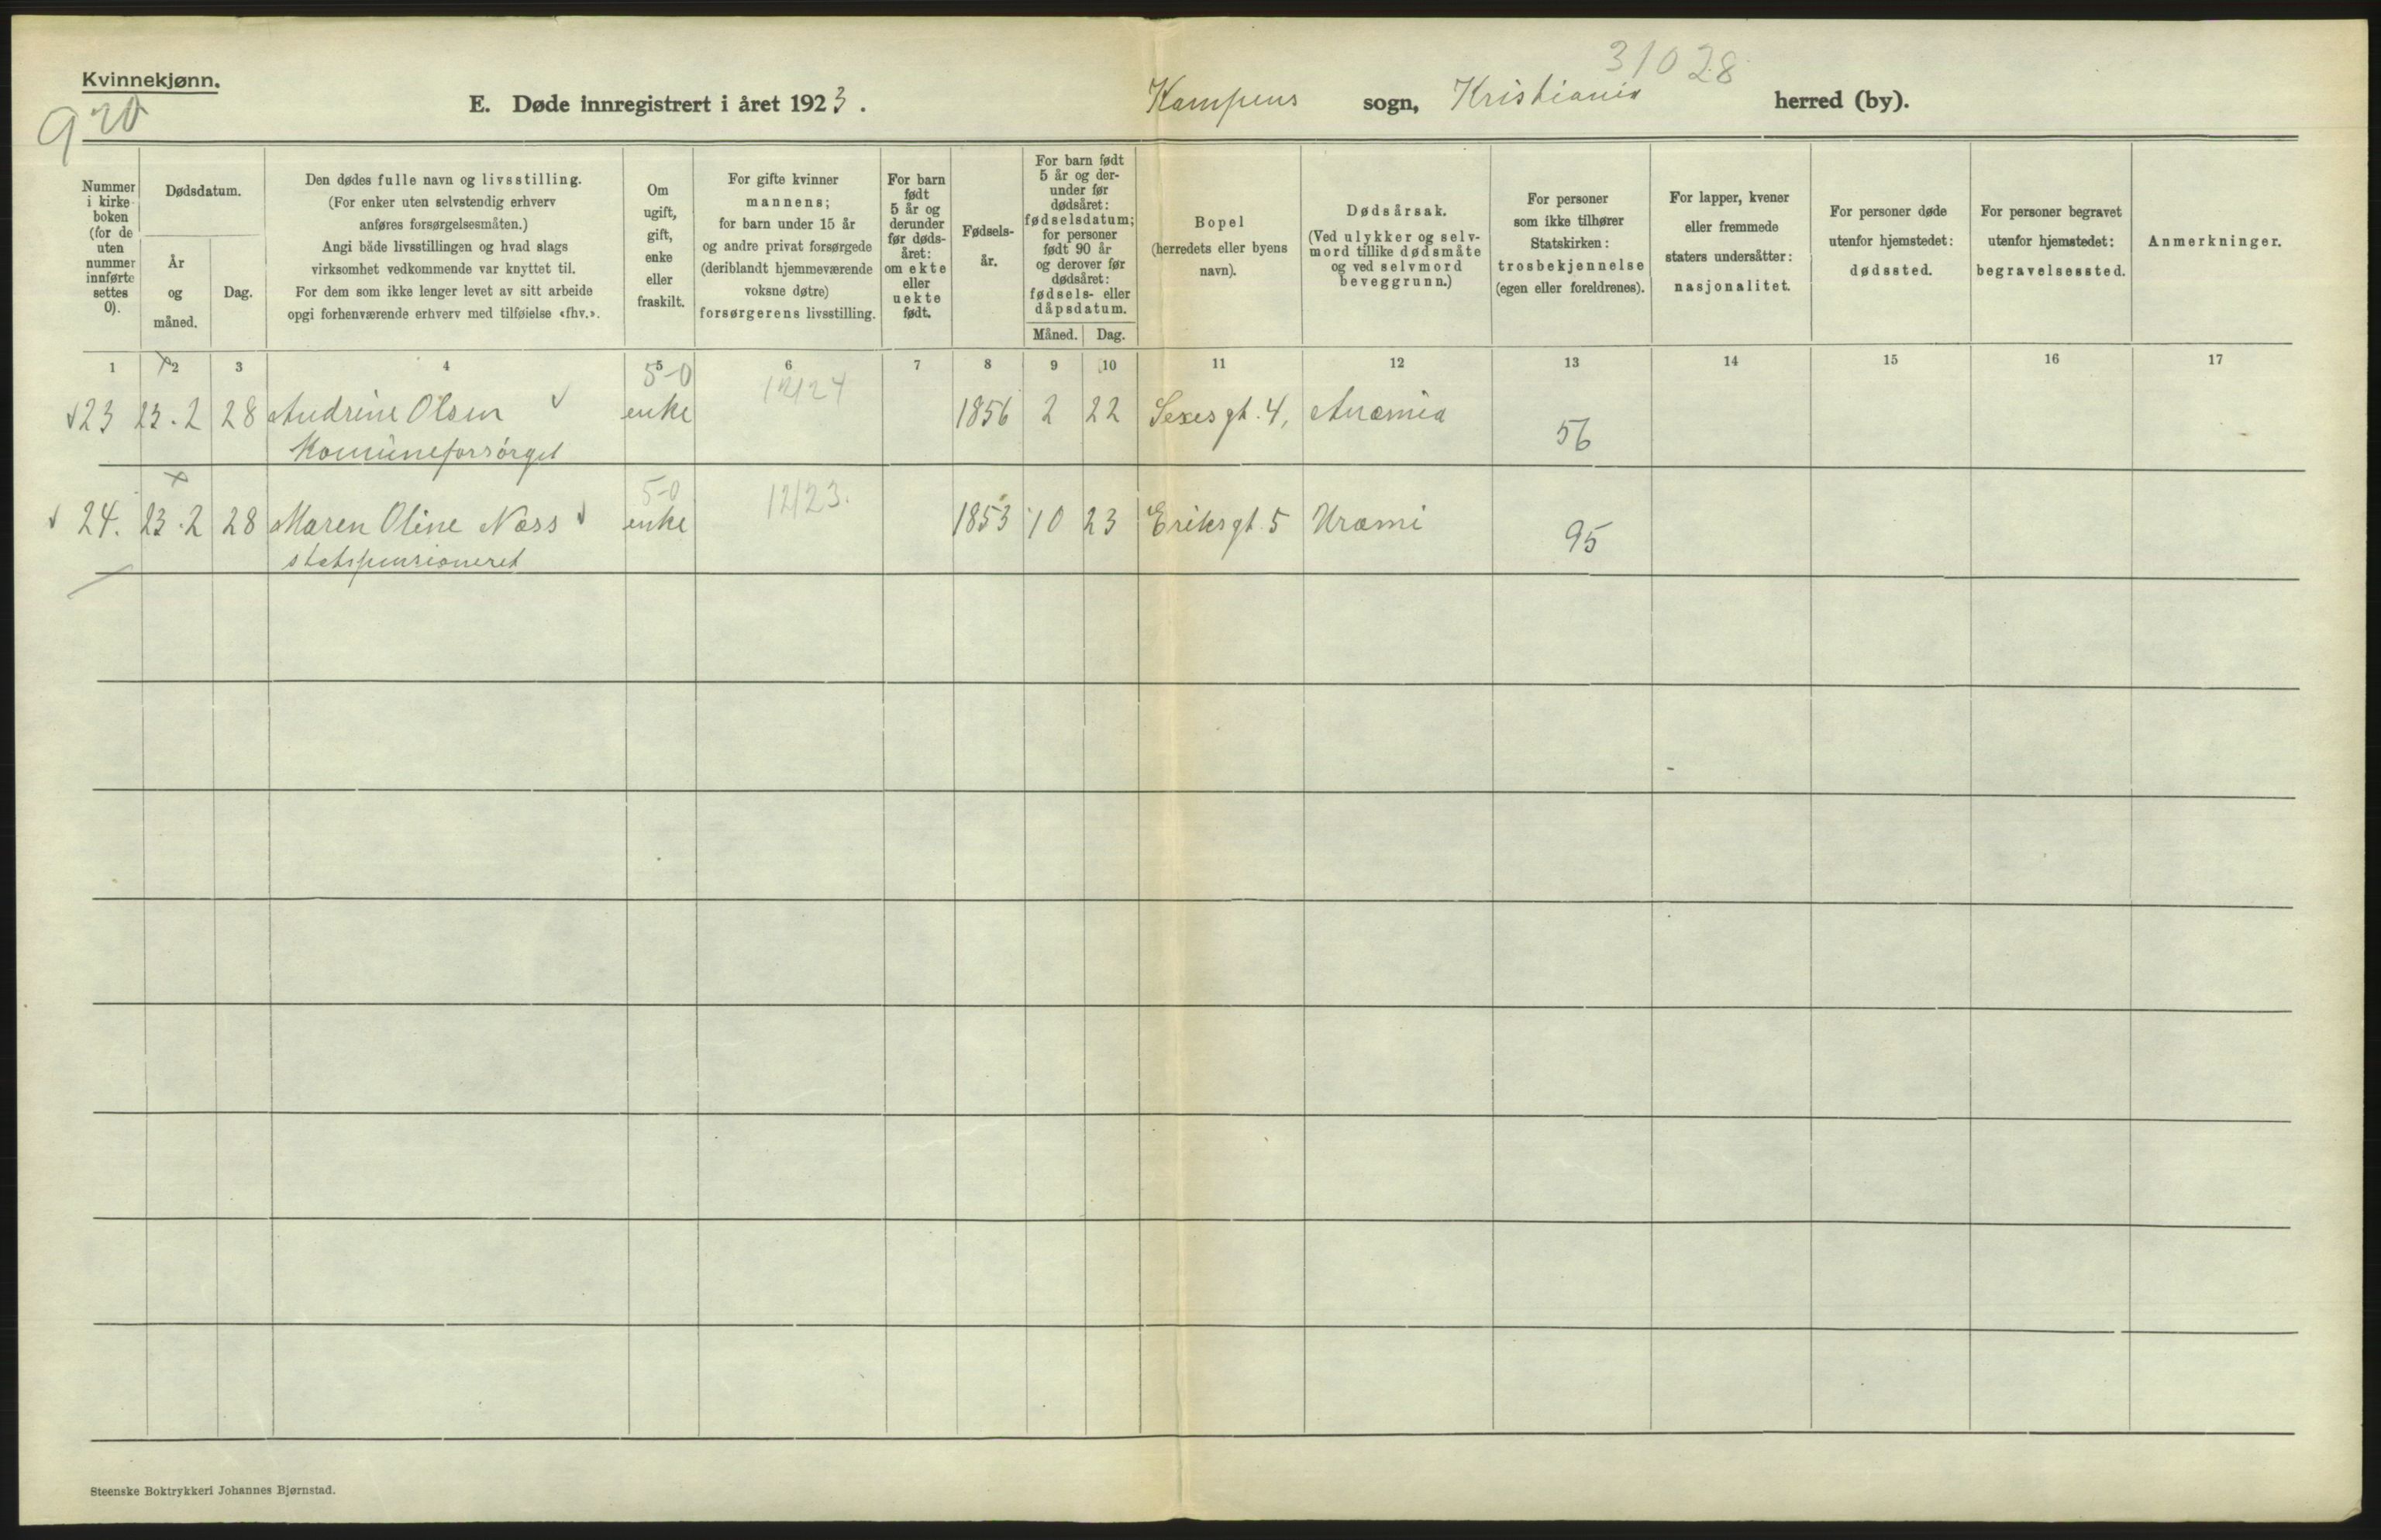 31028
Kvinnekjønn.
920
E. Døde innregistrert i året 1923. Kampens sogn, Kristiania herred (by).
Nummer i kirkeboken (for de uten nummer innførte settes 0).
Dødsdatum.
År og måned.
Dag.
Den dødes fulle navn og livsstilling.
(For enker uten selvstendig erhverv
anføres forsørgelsesmåten.)
Angi både livsstillingen og hvad slags
virksomhet vedkommende var knyttet til.
For dem som ikke lenger levet av sitt arbeide
opgi forhenværende erhverv med tilføielse «fhv.».
Om ugift, gift, enke eller fraskilt.
For gifte kvinner
mannens;
for barn under 15 år
og andre privat forsørgede
(deriblandt hjemmeværende
voksne døtre)
forsørgerens livsstilling.
For barn født 5 år og derunder før dødsåret: om ekte eller uekte født.
Fødselsår.
For barn født 5 år og derunder før dødsåret: fødselsdatum; for personer født 90 år og derover før dødsåret: fødsels- eller dåpsdatum.
Måned. Dag.
Bopel
(herredets eller byens
navn).
Dødsårsak.
(Ved ulykker og selvmord tillike dødsmåte og ved selvmord beveggrunn.)
For personer
som ikke tilhører
Statskirken:
trosbekjennelse
(egen eller foreldrenes).
For lapper, kvener
eller fremmede
staters undersåtter:
nasjonalitet.
For personer døde
utenfor hjemstedet:
dødssted.
For personer begravet
utenfor hjemstedet:
begravelsessted.
Anmerkninger.
1 2 3 4 5 6 7 8 9 10 11 12 13 14 15 16 17
5-0 12/24
23 23.2 28 Andrine Olsen enke 1856 2 22 Sexesgt. 4, Anæmia 56
Komuneforsørget
5-0 12/23.
24. 23.2 28 Maren Oline Næss enke 1853 10 23 Eriksgt. 5 Uræmi 95
statspensioneret
Steenske Boktrykkeri Johannes Bjørnstad.